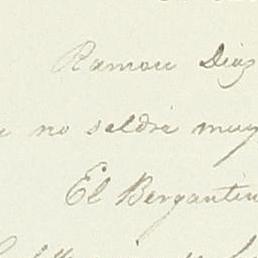 Ramon Diaz
no saldrá muy
El Bergantin